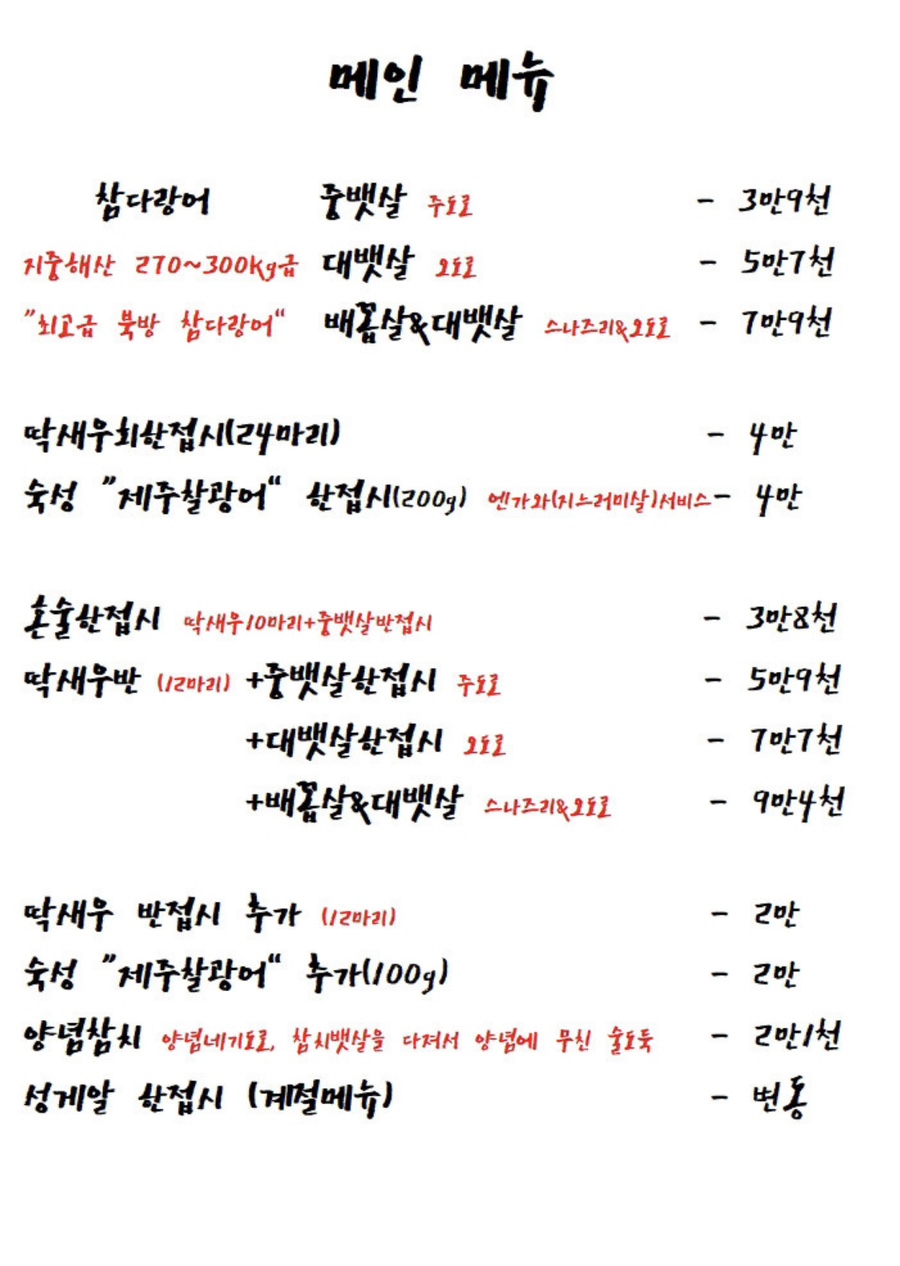 메인 메뉴
참다랑어 중뱃살 주도로 - 3만9천
지중해산 270~300kg급 대뱃살 오도로 - 5만7천
"최고급 북방 참다랑어" 배꼽살&대뱃살 스나즈리&오도로 - 7만9천
딱새우회한접시(24마리) - 4만
숙성 "제주찰광어" 한접시(200g) 엔가와(지느러미살)서비스- 4만
혼술한접시 딱새우10마리+중뱃살반접시 - 3만8천
딱새우반 (12마리) +중뱃살한접시 주도로 - 5만9천
+대뱃살한접시 오도로 - 7만7천
+배꼽살&대뱃살 스나즈리&오도로 - 9만4천
딱새우 반접시 추가 (12마리) - 2만
숙성 "제주찰광어" 추가(100g) - 2만
양념참치 양념네기도로, 참치뱃살을 다져서 양념에 무친 술도둑 - 2만1천
성게알 한접시 (계절메뉴) - 변동